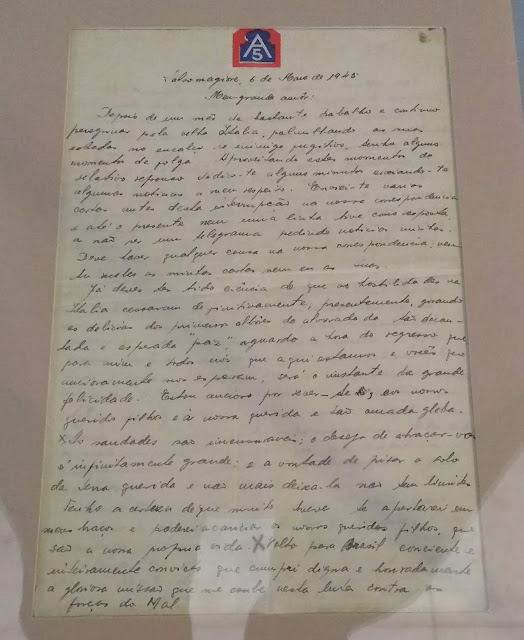 A
5
Salsomagiore, 6 de Maio de 1945
Meu grande amôr:
Depois de um mês de bastante trabalho e continuo
peregrinar pela velha Italia, palmilhando as suas
estradas no encalço do inimigo fugitivo, tenho alguns
momentos de folga. Aproveitando estes momentos de
relativo repouso dedico-te alguns minutos enviando-te
algumas noticias a meu respeito. Enviei-te varias
cartas antes desta interrupção na nossa correspondencia
e até o presente nem uma linha tive como resposta
a não ser um telegrama pedindo noticias minhas.
Deve haver qualquer cousa na nossa correspondencia, nem
tu recebes as minhas cartas nem eu as tuas.
Já deves ter tido ciência de que as hostilidades na
Italia cessaram definitivamente, presentemente, gosando
as delicias dos primeiros albôres da alvorada da tão decan-
tada e esperada "paz", aguardo a hora do regresso que
para mim e todos nós que aqui estamos e vocês que
anciosamente nos esperam, será o instante da grande
felicidade. Estou ancioso por rever-te, aos nossos
querido filhos e à nossa querida e tão amada gleba.
X As saudades são incensuraveis; o desejo de abraçar-vos
é infinitamente grande: e a vontade de pisar o solo
da terra querida e não mais deixa-la não tem limites
Tenho a certeza de que muito breve te apertarei em
meus braços e poderei acariciar os nossos queridos filhos, que
são a nossa propria vida. X Volto para Brasil conciente e
inteiramente convicto que cumpri digna e honradamente
a gloriosa missão que me coube nesta luta contra as
forças do Mal